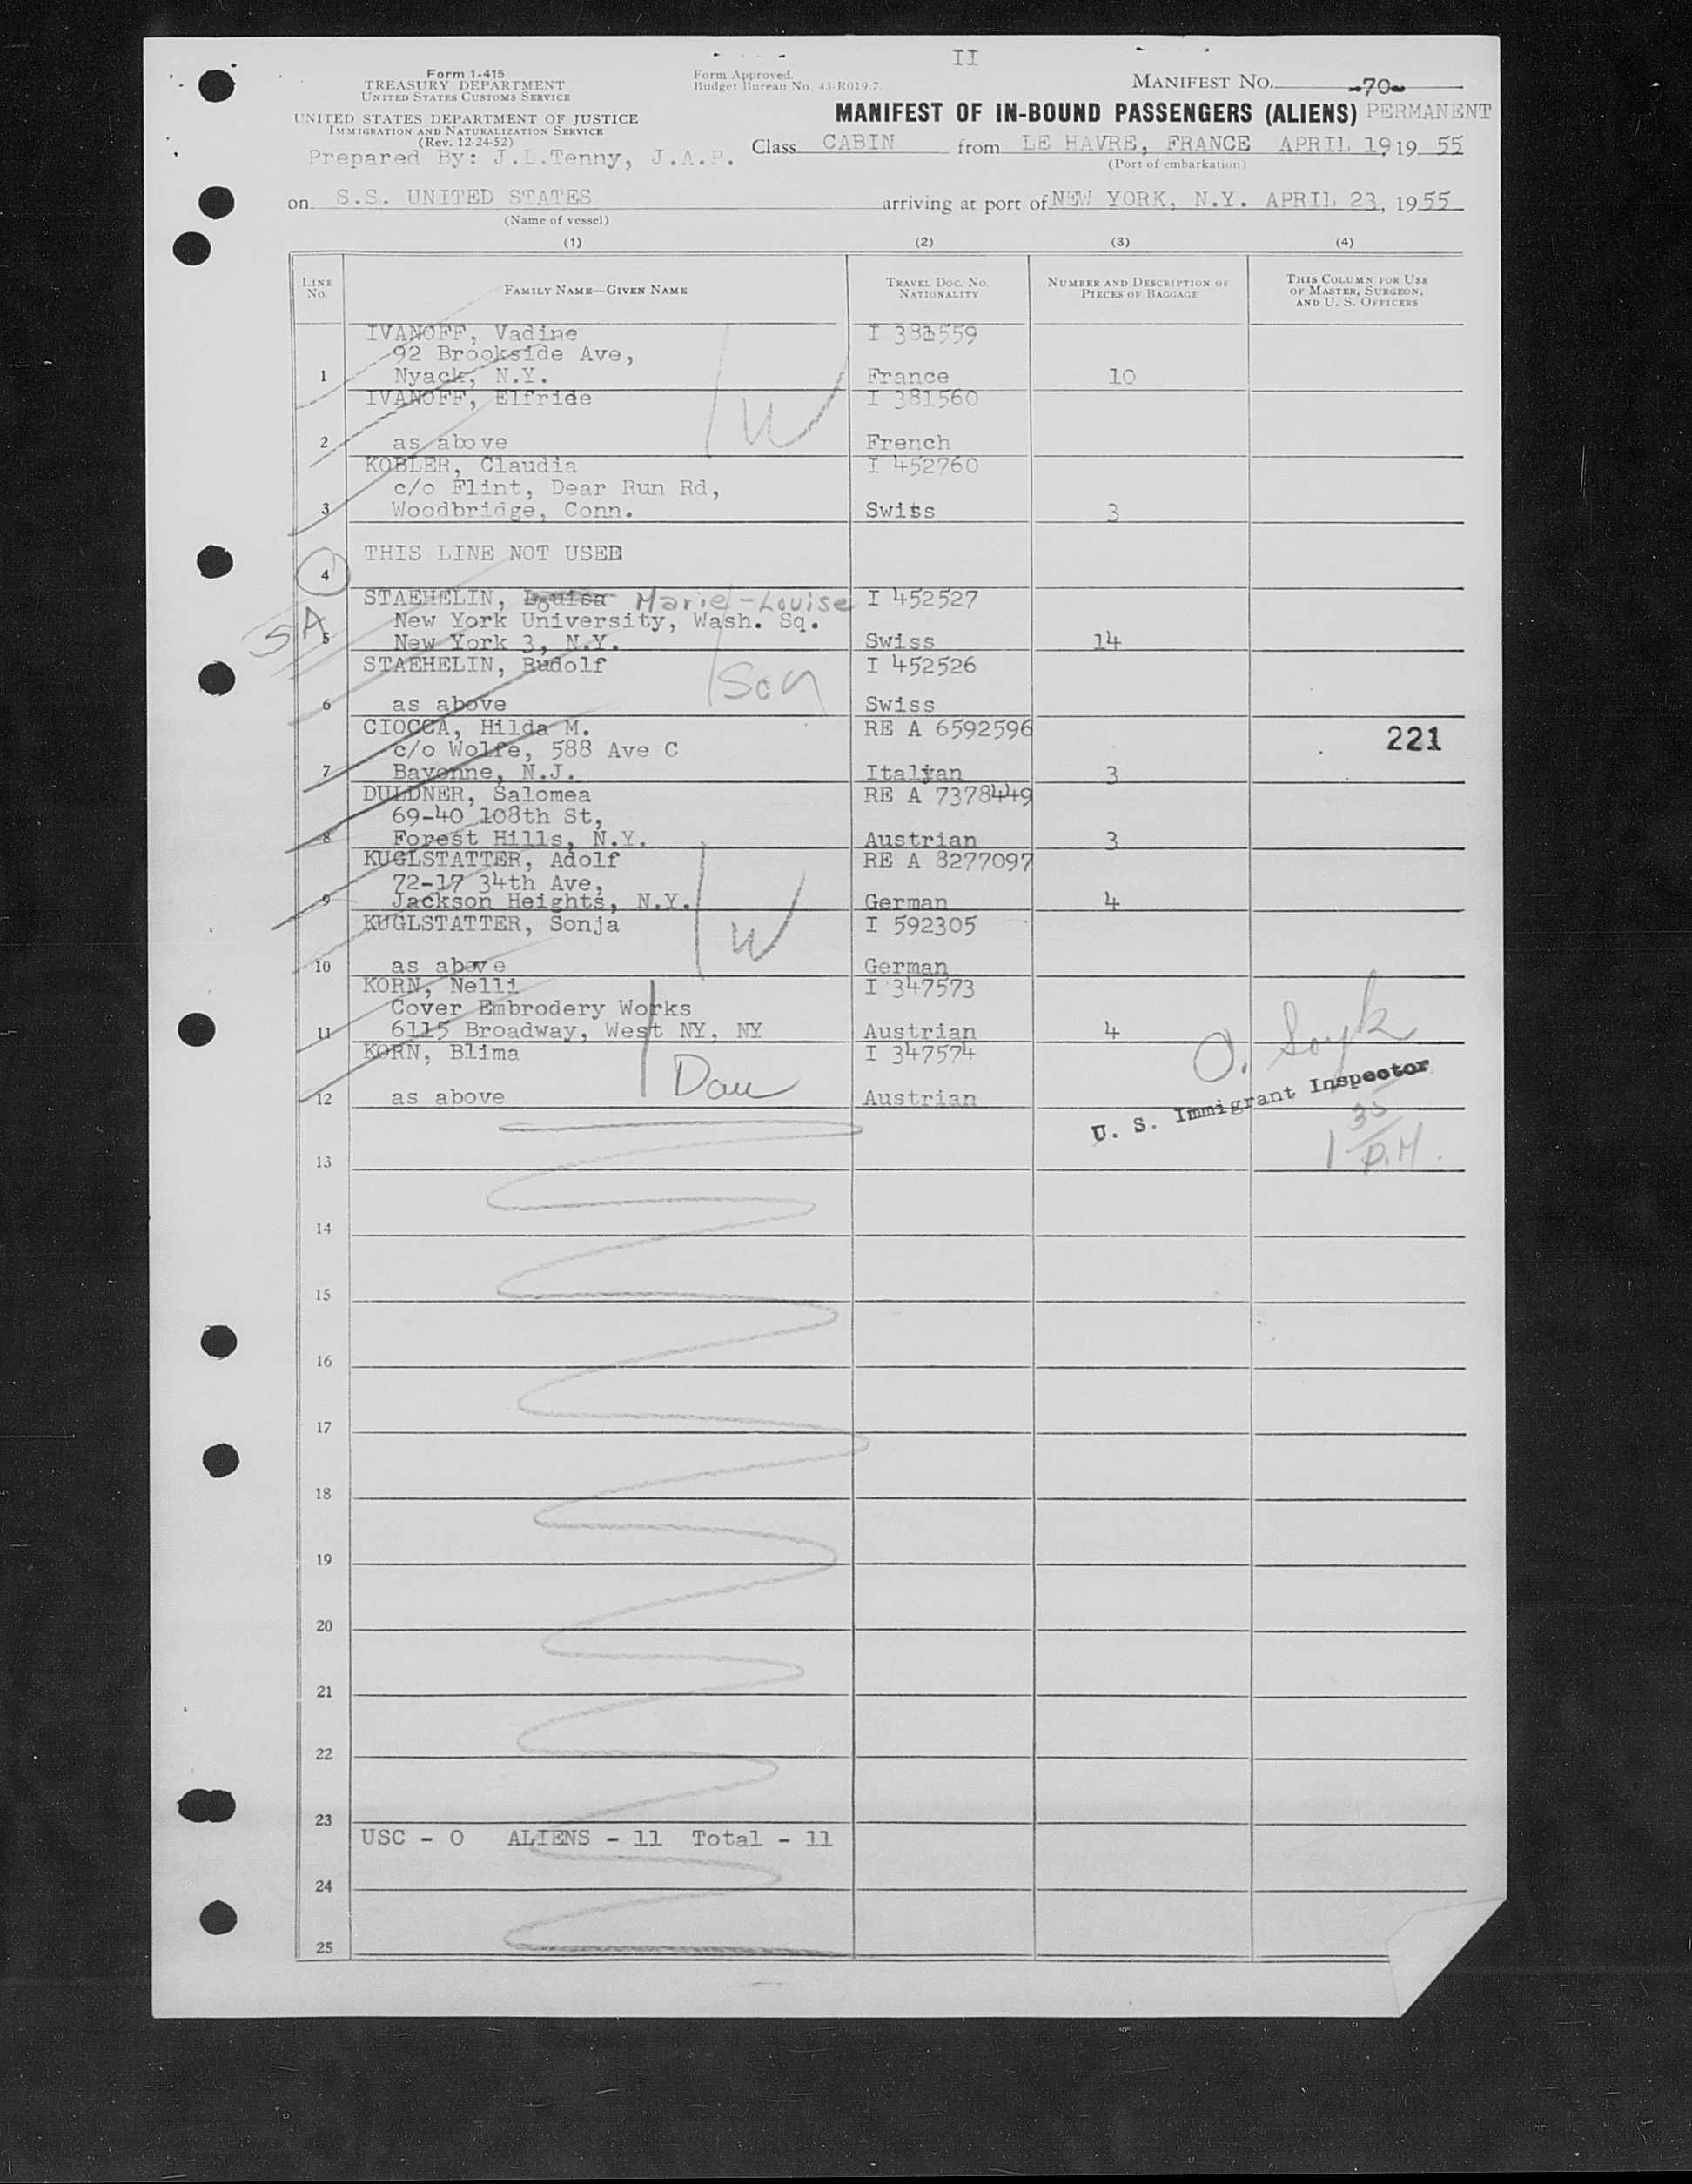 II
Form 1-415
TREASURY DEPARTMENT
UNITED STATES CUSTOMS SERVICE
UNITED STATES DEPARTMENT OF JUSTICE
IMMIGRATION AND NATURALIZATION SERVICE
(Rev. 12-24-52)
Prepared By: J.L.Tenny, J.A.P.
Form Approved.
Budget Bureau No. 43-R019.7.
MANIFEST NO. -70-
MANIFEST OF IN-BOUND PASSENGERS (ALIENS) PERMANENT
Class CABIN from LE HAVRE, FRANCE APRIL 19 19 55
(Port of embarkation)
on S.S. UNITED STATES arriving at port of NEW YORK, N.Y. APRIL 23, 1955
(Name of vessel)
(1) (2) (3) (4)
LINE No.
FAMILY NAME—GIVEN NAME
TRAVEL DOC. NO. NATIONALITY
NUMBER AND DESCRIPTION OF PIECES OF BAGGAGE
THIS COLUMN FOR USE OF MASTER, SURGEON, AND U. S. OFFICERS
IVANOFF, Vadine I 381559
92 Brookside Ave,
1 Nyack, N.Y. France 10
IVANOFF, Elfride W I 381560
2 as above French
KOBLER, Claudia I 452760
c/o Flint, Dear Run Rd,
3 Woodbridge, Conn. Swiss 3
THIS LINE NOT USED
4
STAEHELIN, Louisa Marie-Louise I 452527
New York University, Wash. Sq.
SA 5 New York 3, N.Y. Swiss 14
STAEHELIN, Rudolf Son I 452526
6 as above Swiss
CIOCCA, Hilda M. RE A 6592596
c/o Wolfe, 588 Ave C 221
7 Bayonne, N.J. Italian 3
DULDNER, Salomea RE A 7378449
69-40 108th St,
8 Forest Hills, N.Y. Austrian 3
KUGLSTATTER, Adolf RE A 8277097
72-17 34th Ave,
9 Jackson Heights, N.Y. German 4
KUGLSTATTER, Sonja W I 592305
10 as above German
KORN, Nelli I 347573
Cover Embrodery Works
11 6115 Broadway, West NY, NY Austrian 4
KORN, Blima Dau I 347574
12 as above Austrian
O.
U. S. Immigrant Inspector
1 35 P.M.
13
14
15
16
17
18
19
20
21
22
23
USC - 0 ALIENS - 11 Total - 11
24
25